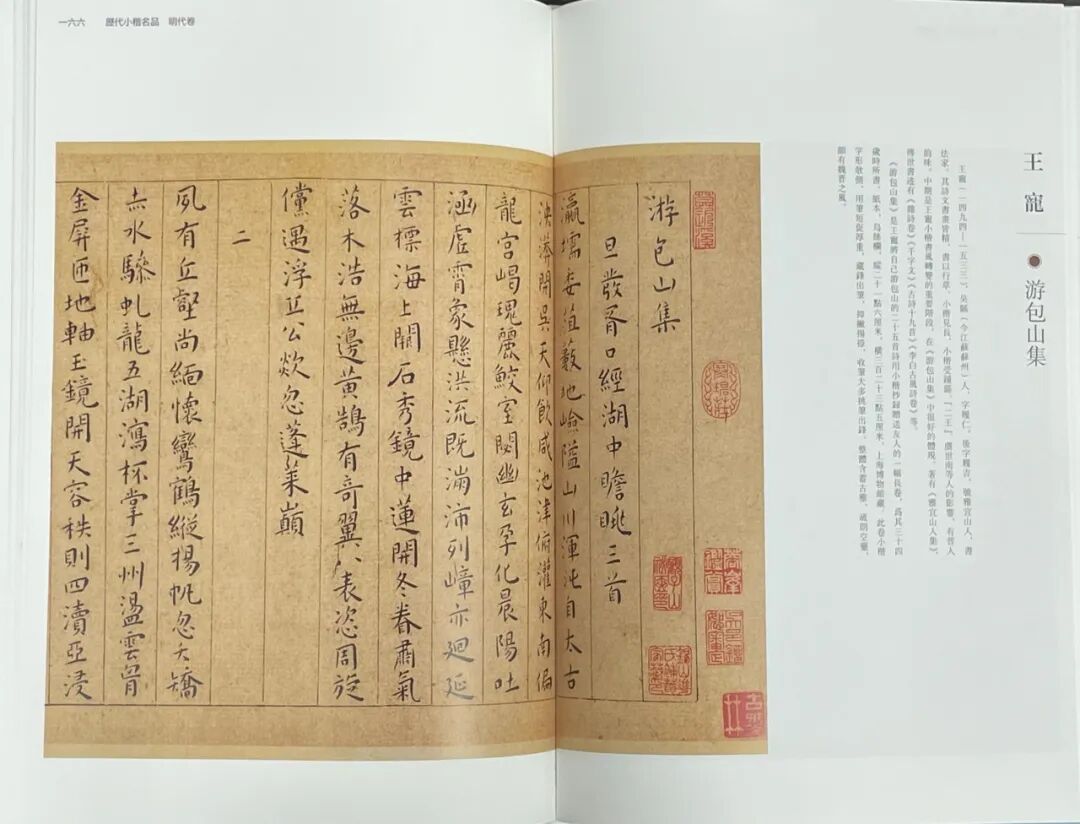 一六六　歷代小楷名品　明代卷
王寵 ● 游包山集
王寵（一四九四—一五三三），吳縣（今江蘇蘇州）人，字履仁，後字履吉，號雅宜山人，書
法家。其詩文書畫皆精，書以行草、小楷見長，小楷受鍾繇、『二王』、虞世南等人的影響，有晋人
韵味。中期是王寵小楷書風轉變的重要階段，在《游包山集》中很好的體現。著有《雅宜山人集》，
傳世書迹有《雜詩卷》《千字文》《古詩十九首》《李白古風詩卷》等。
《游包山集》是王寵將自己游包山的二十五首詩用小楷抄録贈送友人的一幅長卷，爲其三十四
歲時所書，紙本，烏絲欄，縱二十一點六厘米，橫三百二十三點五厘米，上海博物館藏。此卷小楷
字形欹側，用筆短促厚重，藏鋒出筆，抑撇揚捺，收筆大多挑筆出鋒，整體含蓄古雅，疏朗空靈，
頗有魏晋之風。
游包山集
旦發胥口經湖中瞻眺三首
瀛壖委苴藪地嶮隘山川渾沌自太古
泱漭開吳天仰飲咸池津俯灌東南偏
龍宮嵑瑰麗鮫室閟幽玄孕化晨陽吐
涵虛霄象懸洪流既漰沛列嶂亦廻延
雲標海上闕石秀鏡中蓮開冬春肅氣
落木浩無邊黃鵠有奇翼八表恣周旋
儻遇浮丘公欻忽蓬萊巔
二
夙有丘壑尚緬懷鸞鶴縱揚帆忽夭矯
赤水驂虬龍五湖瀉杯掌三州盪雲胷
金屏匝地軸玉鏡開天容秩則四瀆亞浸